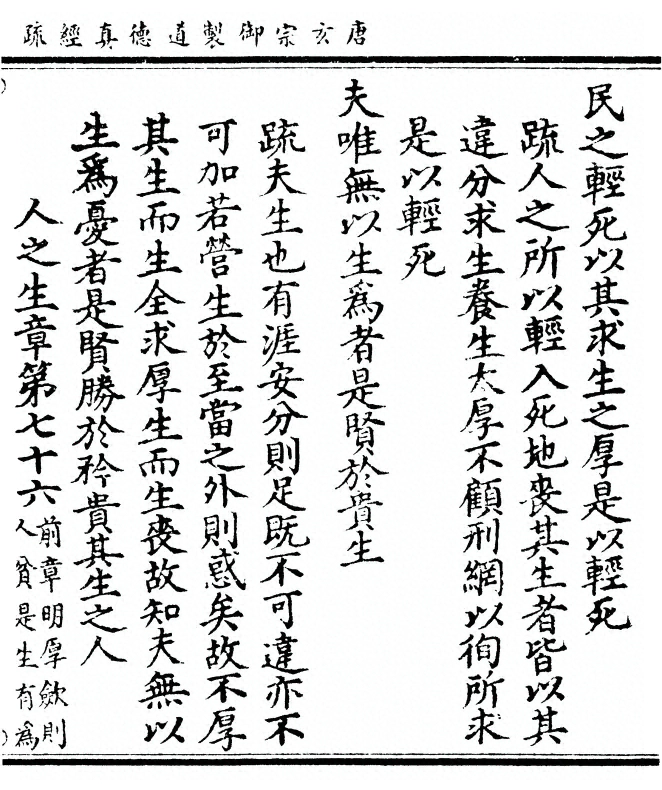 唐玄宗御製道德真經疏
民之輕死以其求生之厚是以輕死
疏人之所以輕入死地喪其生者皆以其
違分求生養生太厚不顧刑網以徇所求
是以輕死
夫唯無以生為者是賢於貴生
疏夫生也有涯安分則足既不可違亦不
可加若營生於至當之外則惑矣故不厚
其生而生全求厚生而生喪故知夫無以
生爲憂者是賢勝於矜貴其生之人
人之生章第七十六
前章明厚歛則
人貧是生有爲